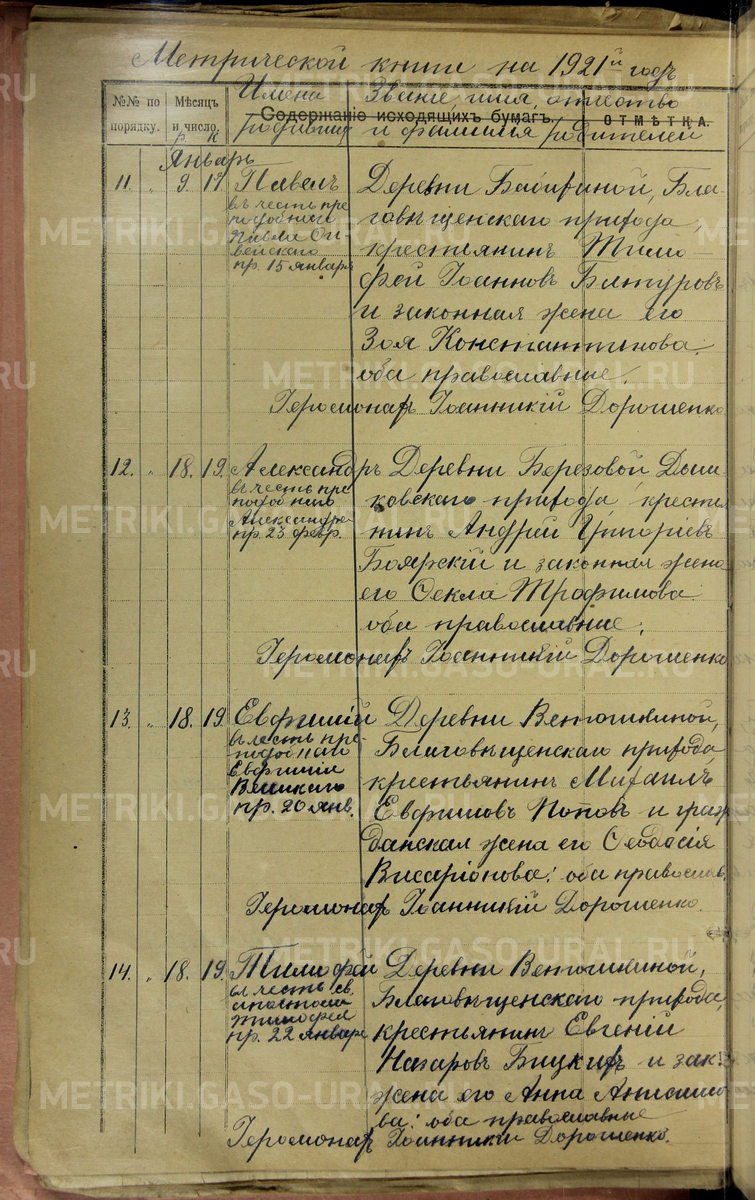 Метрической книги на 1921й годъ
№№ по порядку.
Мѣсяцъ и число.
р. к
Имена родившихся
Содержаніе исходящихъ бумагъ.
Званіе, имя, отчество
и фамилія родителей
ОТМѢТКА.
Январь
11. " 9. 19. Павелъ
въ честь пре
подобнаго
Павла
пр. 15 января
Деревни Бабиѳиной, Бла-
говѣщенскаго прихода,
крестьянинъ Тимо-
фей Іоанновъ Батуровъ
и законная жена его
Зоя Константинова:
оба православные.
Іеромонахъ Іоанникій Дорошенко
12. " 18. 19. Александръ
въ честь пре
подобнаго
Александра
пр. 23 февр.
Деревни Березовой,
ковскаго прихода, крестья
нинъ Андрей Григорьевъ
Боярскій и законная жена
его Ѳекла Трофимова
оба православные.
Іеромонахъ Іоанникій Дорошенко
13. " 18. 19. Евфимій
въ честь пре-
подобнаго
Евфимія
Великаго
пр. 20 янв.
Деревни Ветошкиной,
Благовѣщенскаго прихода,
крестьянинъ Михаилъ
Евфимовъ Поповъ и граж
данская жена его Ѳеодосія
Висаріонова: оба православ.
Іеромонахъ Іоанникій Дорошенко.
14. " 18. 19. Тимофей
въ честь св.
апостола
Тимофея
пр. 22 января
Деревни Ветошкиной,
Благовѣщенскаго прихода,
крестьянинъ Евгеній
Назаровъ Бицкихъ и зак.
жена его Анна Антоно
ва: оба православные
Іеромонахъ Іоанникій Дорошенко.
METRIKI.GASO-URAL.RU